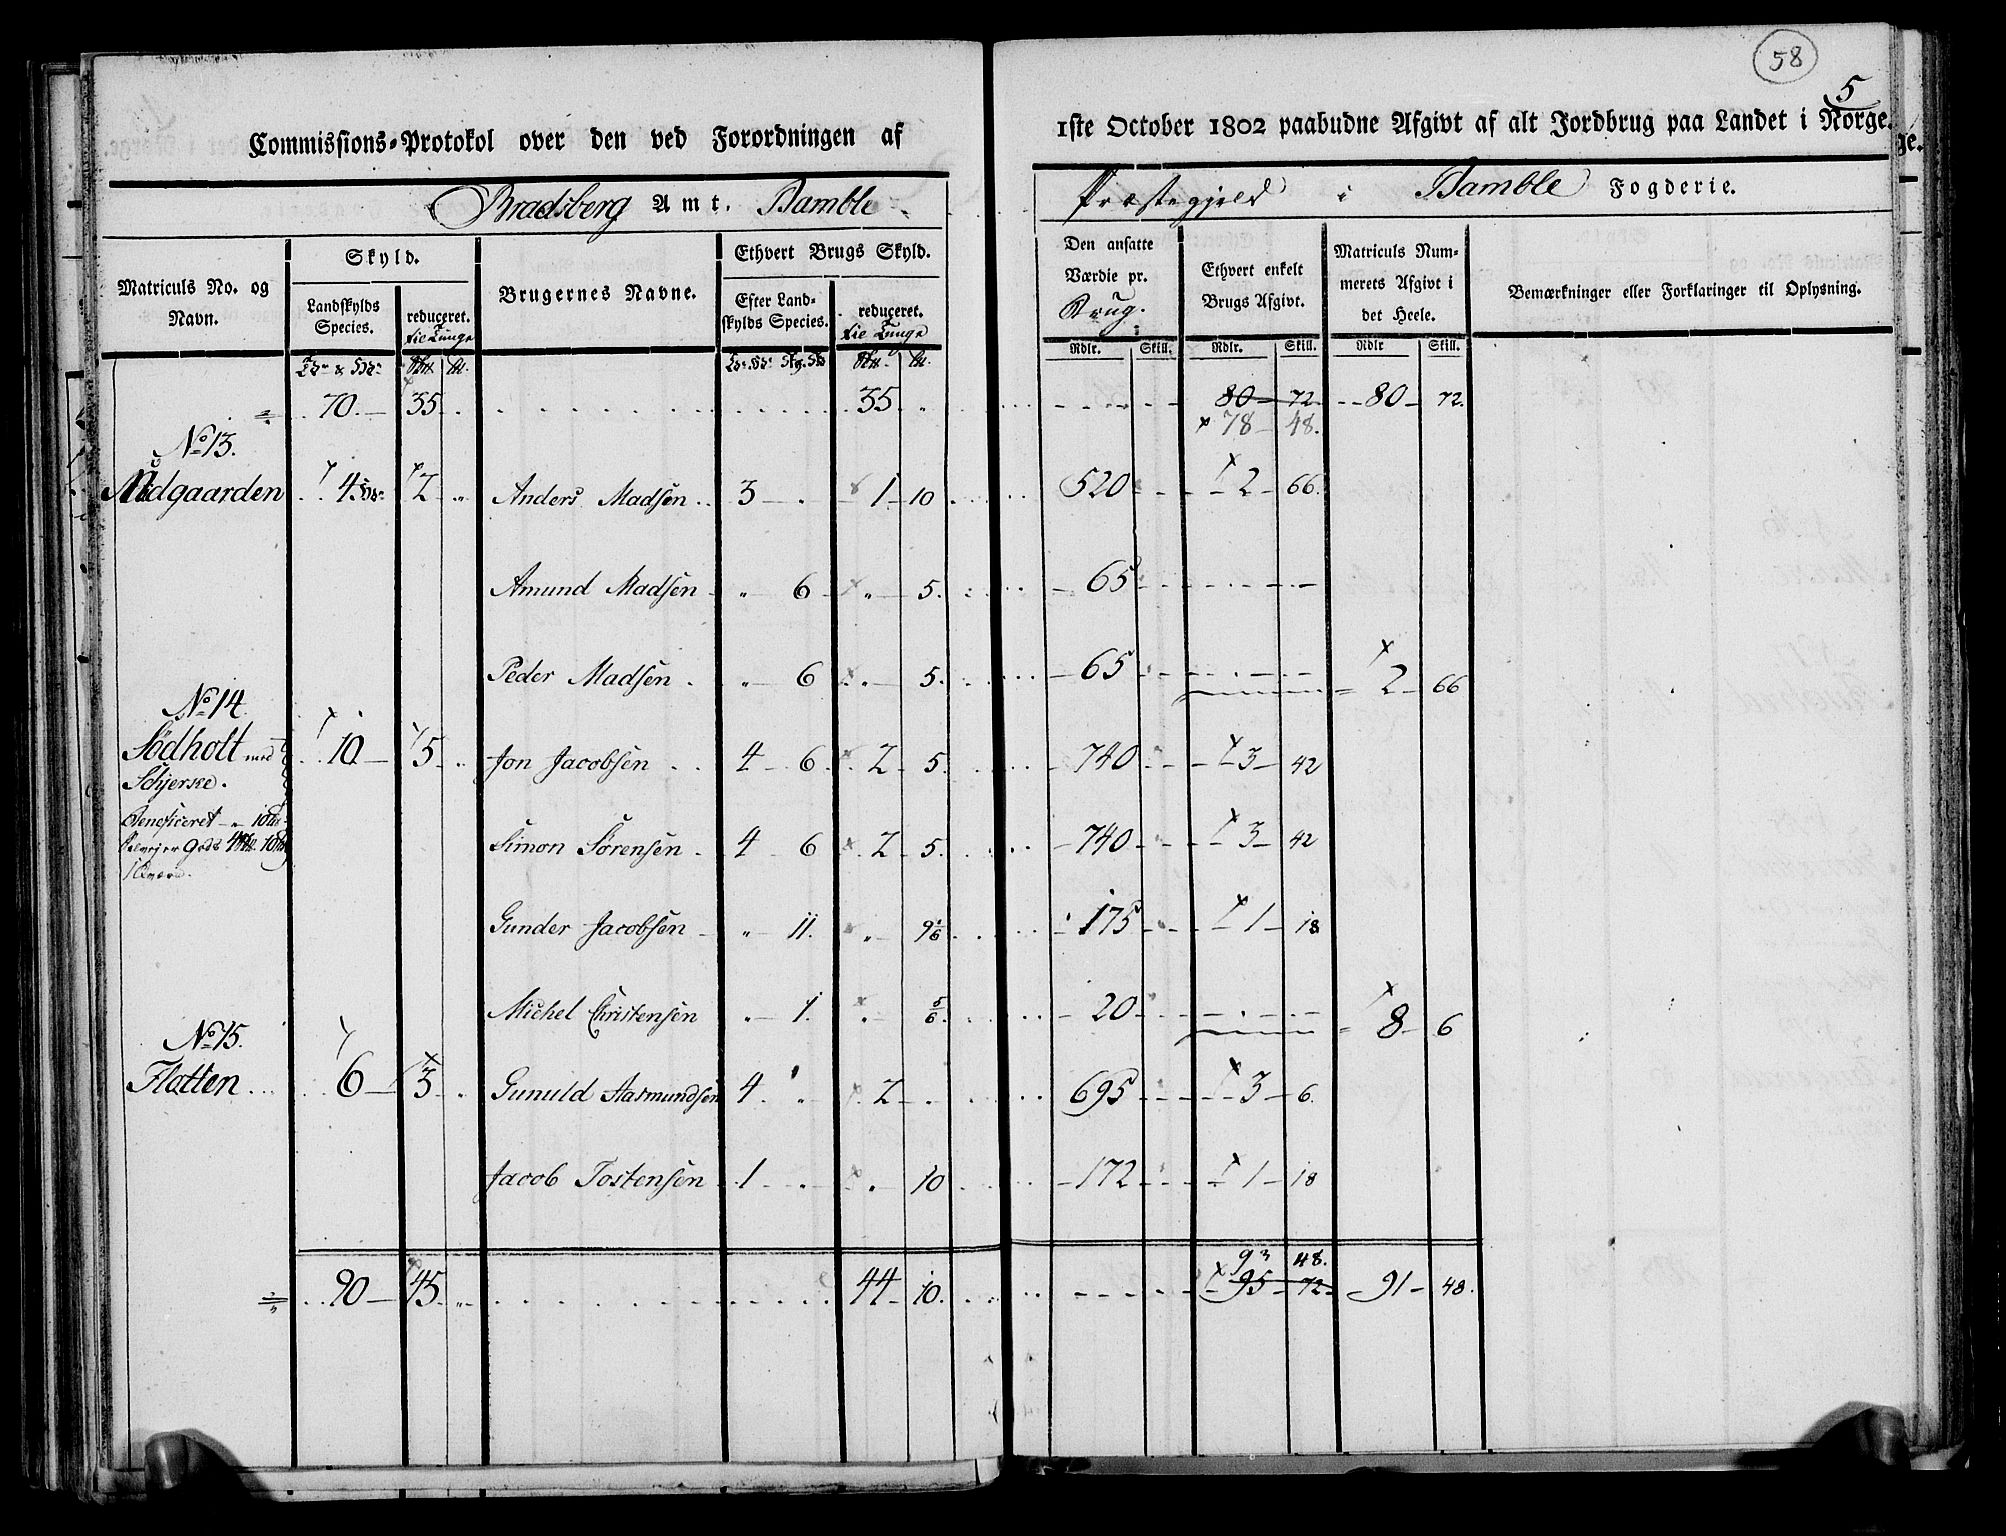 58
5
Commissions-Protokol over den ved Forordningen af 1ste October 1802 paabudne Afgivt af alt Jordbrug paa Landet i Norge.
Bradsberg Amt. Bamble Præstegjeld i Bamble Fogderie.
Matriculs No. og Navn.
Skyld.
Landskylds Species.
reduceret. til Tunge
Brugernes Navne.
Ethvert Brugs Skyld.
Efter Landskylds Species.
reduceret. til Tunge
Den ansatte Værdie pr. Brug.
Ethvert enkelt Brugs Afgivt.
Matriculs Nummerets Afgivt i det Heele.
Bemærkninger eller Forklaringer til Oplysning.
Rdlr. Skill. Rdlr. Skill. Rdlr Skill.
70 35 35 80 72 80 72
78 48
No 13.
Aadgaarden 4 2 Anders Madsen 3 1 10 520 2 66
Amund Madsen 6 5 65
Peder Madsen 6 5 65 2 66
No 14
Södholt med 10 5 Jon Jacobsen 4 6 2 5 740 3 42
Schjerske.
Beneficeret
Simon Sörensen 4 6 2 5 740 3 42
Gunder Jacobsen 11 9 1/6 175 1 18
Michel Christensen 1 5/6 20 8 6
No 15.
Flatten 6 3 Gunuld Aasmundsen 4 2 695 3 6
Jacob Tostensen 1 10 172 1 18
93 48
90 45 44 10 95 72 91 48